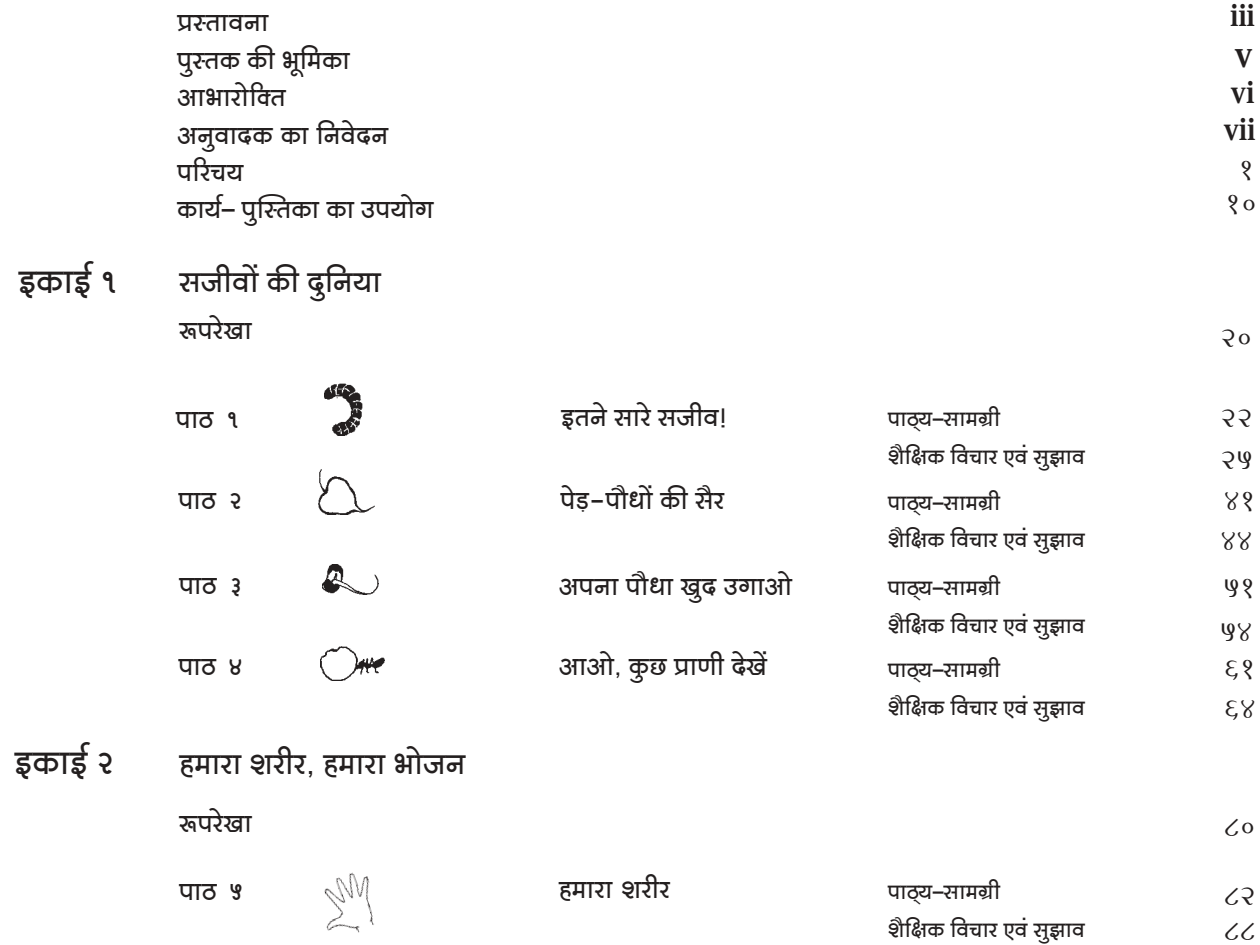 प्रस्तावना iii
पुस्तक की भूमिका v
आभारोक्ति vi
अनुवादक का निवेदन vii
परिचय १
कार्य– पुस्तिका का उपयोग १०
इकाई १ सजीवों की दुनिया
रूपरेखा २०
पाठ १ इतने सारे सजीव! पाठ्य–सामग्री २२
शैक्षिक विचार एवं सुझाव २५
पाठ २ पेड़–पौधों की सैर पाठ्य–सामग्री ४१
शैक्षिक विचार एवं सुझाव ४४
पाठ ३ अपना पौधा खुद उगाओ पाठ्य–सामग्री ५१
शैक्षिक विचार एवं सुझाव ५४
पाठ ४ आओ, कुछ प्राणी देखें पाठ्य–सामग्री ६१
शैक्षिक विचार एवं सुझाव ६४
इकाई २ हमारा शरीर, हमारा भोजन
रूपरेखा ८०
पाठ ५ हमारा शरीर पाठ्य–सामग्री ८२
शैक्षिक विचार एवं सुझाव ८८